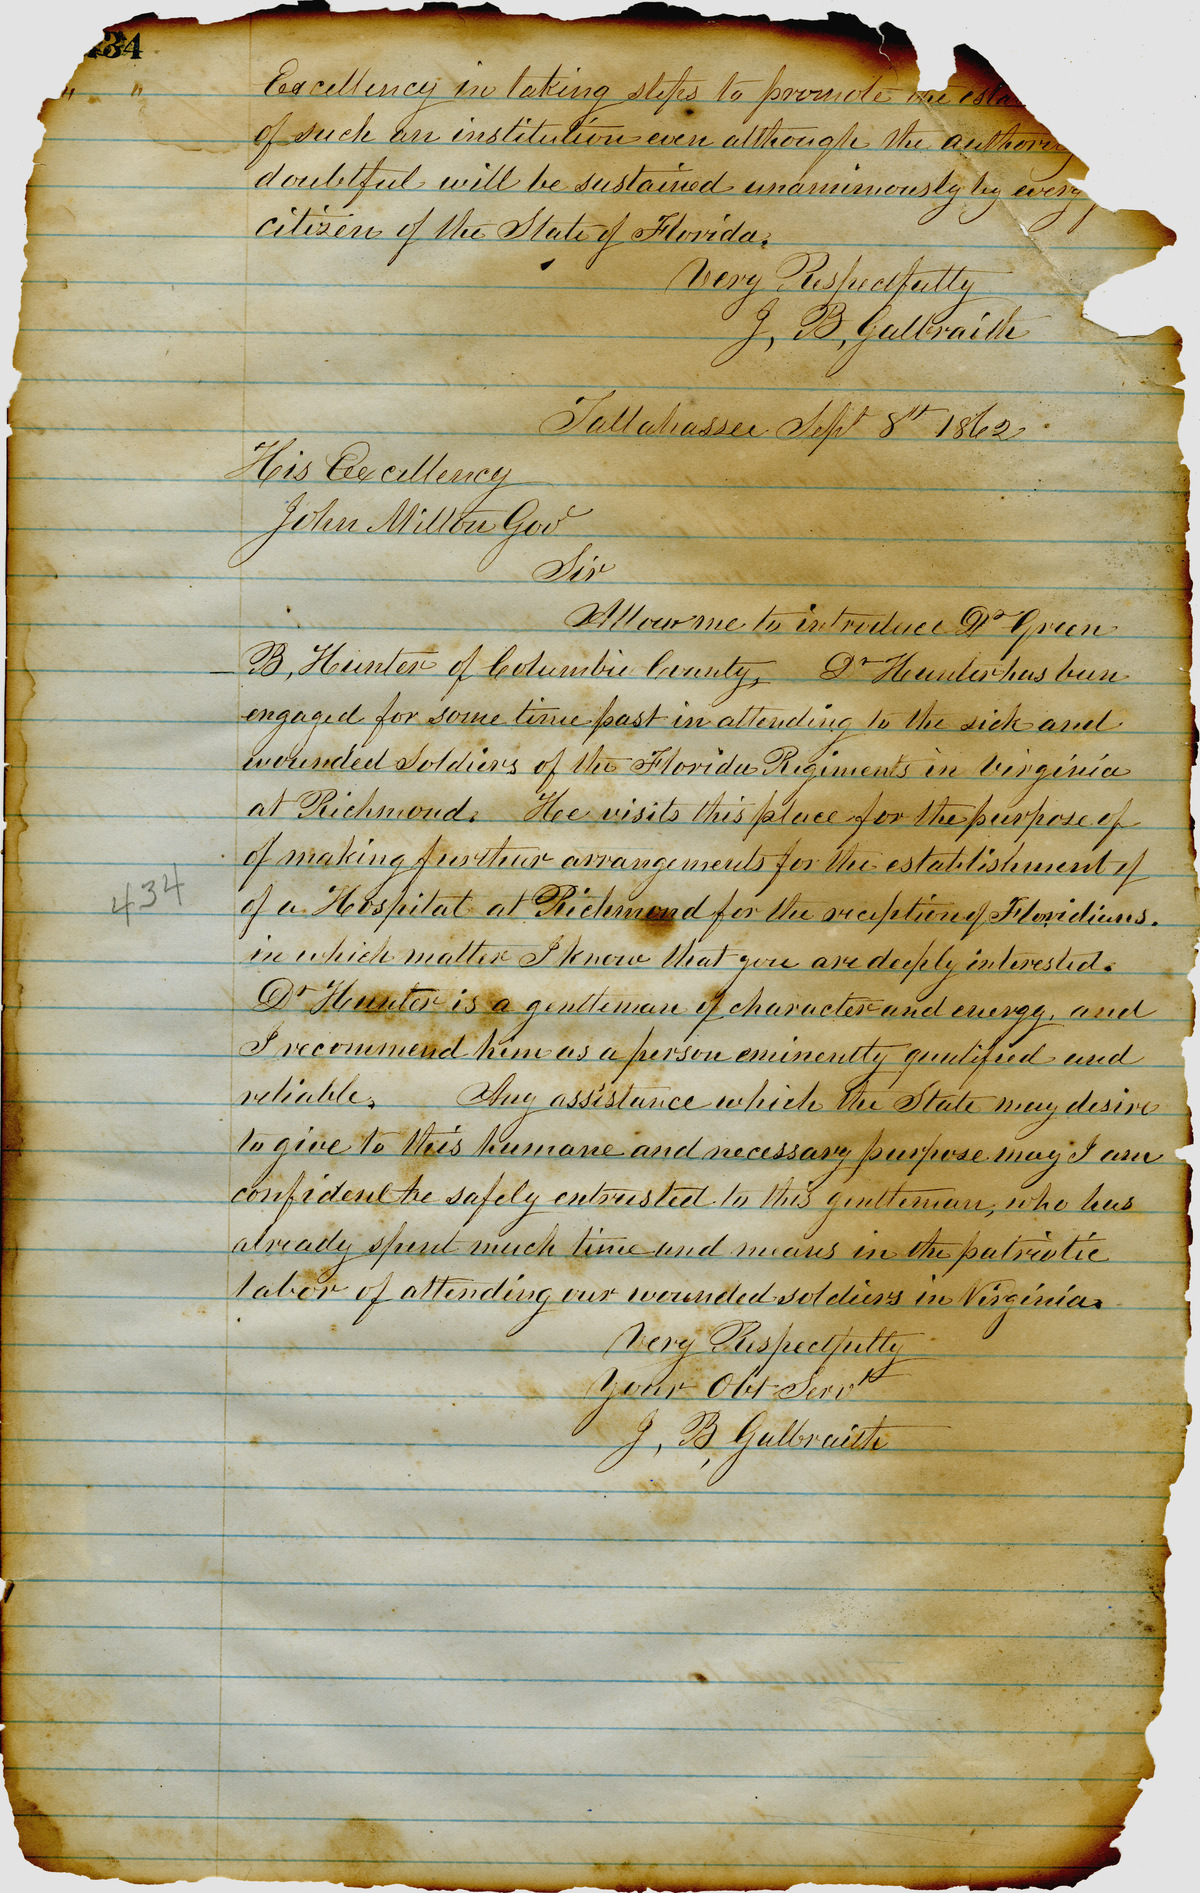 34
" "
Excellency in taking steps to promote the esta
of such an institution even although the authority
doubtful will be sustained unanimously by every
citizen of the State of Florida.
Very Respectfully
J, B, Galbraith
Tallahassee Sept 8th 1862
His Excellency
John Milton Gov
Sir
Allow me to introduce Dr Green
B, Hunter of Columbia County, Dr Hunter has been
engaged for some time past in attending to the sick and
wounded Soldiers of the Florida Regiments in Virginia
at Richmond. He visits this place for the purpose of
of making further arrangements for the establishment of
of a Hospital at Richmond for the reception of Floridians.
434
in which matter I know that you are deeply interested.
Dr Hunter is a gentleman of character and energy, and
I recommend him as a person eminently qualified and
reliable, Any assistance which the State may desire
to give to this humane and necessary purpose may I am
confident be safely entrusted to this gentleman, who has
already spent much time and means in the patriotic
labor of attending our wounded soldiers in Virginia.
Very Respectfully
Your Obt Servt
J, B, Galbraith